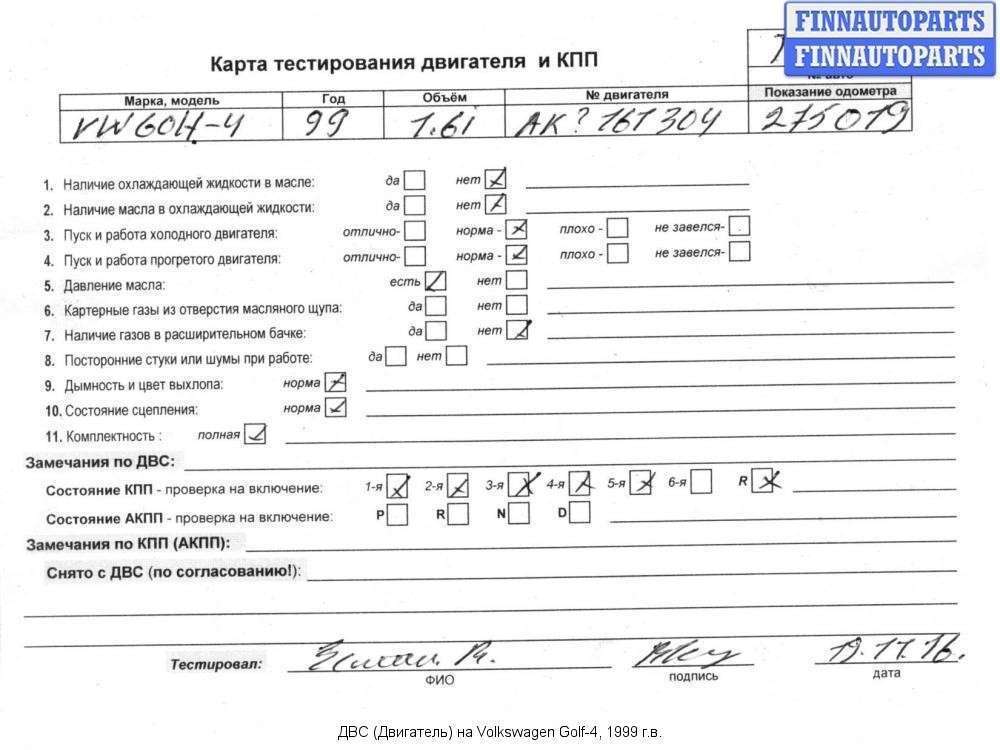 FINNAUTOPARTS
FINNAUTOPARTS
Карта тестирования двигателя и КПП
№ авто
Марка, модель Год Объём № двигателя Показание одометра
99 1.6i АК? 161304 275019
1. Наличие охлаждающей жидкости в масле: да нет
2. Наличие масла в охлаждающей жидкости: да нет
3. Пуск и работа холодного двигателя: отлично- норма - плохо - не завелся-
4. Пуск и работа прогретого двигателя: отлично- норма - плохо - не завелся-
5. Давление масла: есть нет
6. Картерные газы из отверстия масляного щупа: да нет
7. Наличие газов в расширительном бачке: да нет
8. Посторонние стуки или шумы при работе: да нет
9. Дымность и цвет выхлопа: норма
10. Состояние сцепления: норма
11. Комплектность : полная
Замечания по ДВС:
Состояние КПП - проверка на включение: 1-я 2-я 3-я 4-я 5-я 6-я R
Состояние АКПП - проверка на включение: P R N D
Замечания по КПП (АКПП):
Снято с ДВС (по согласованию!):
Тестировал: 19.11.16.
ФИО подпись дата
ДВС (Двигатель) на Volkswagen Golf-4, 1999 г.в.